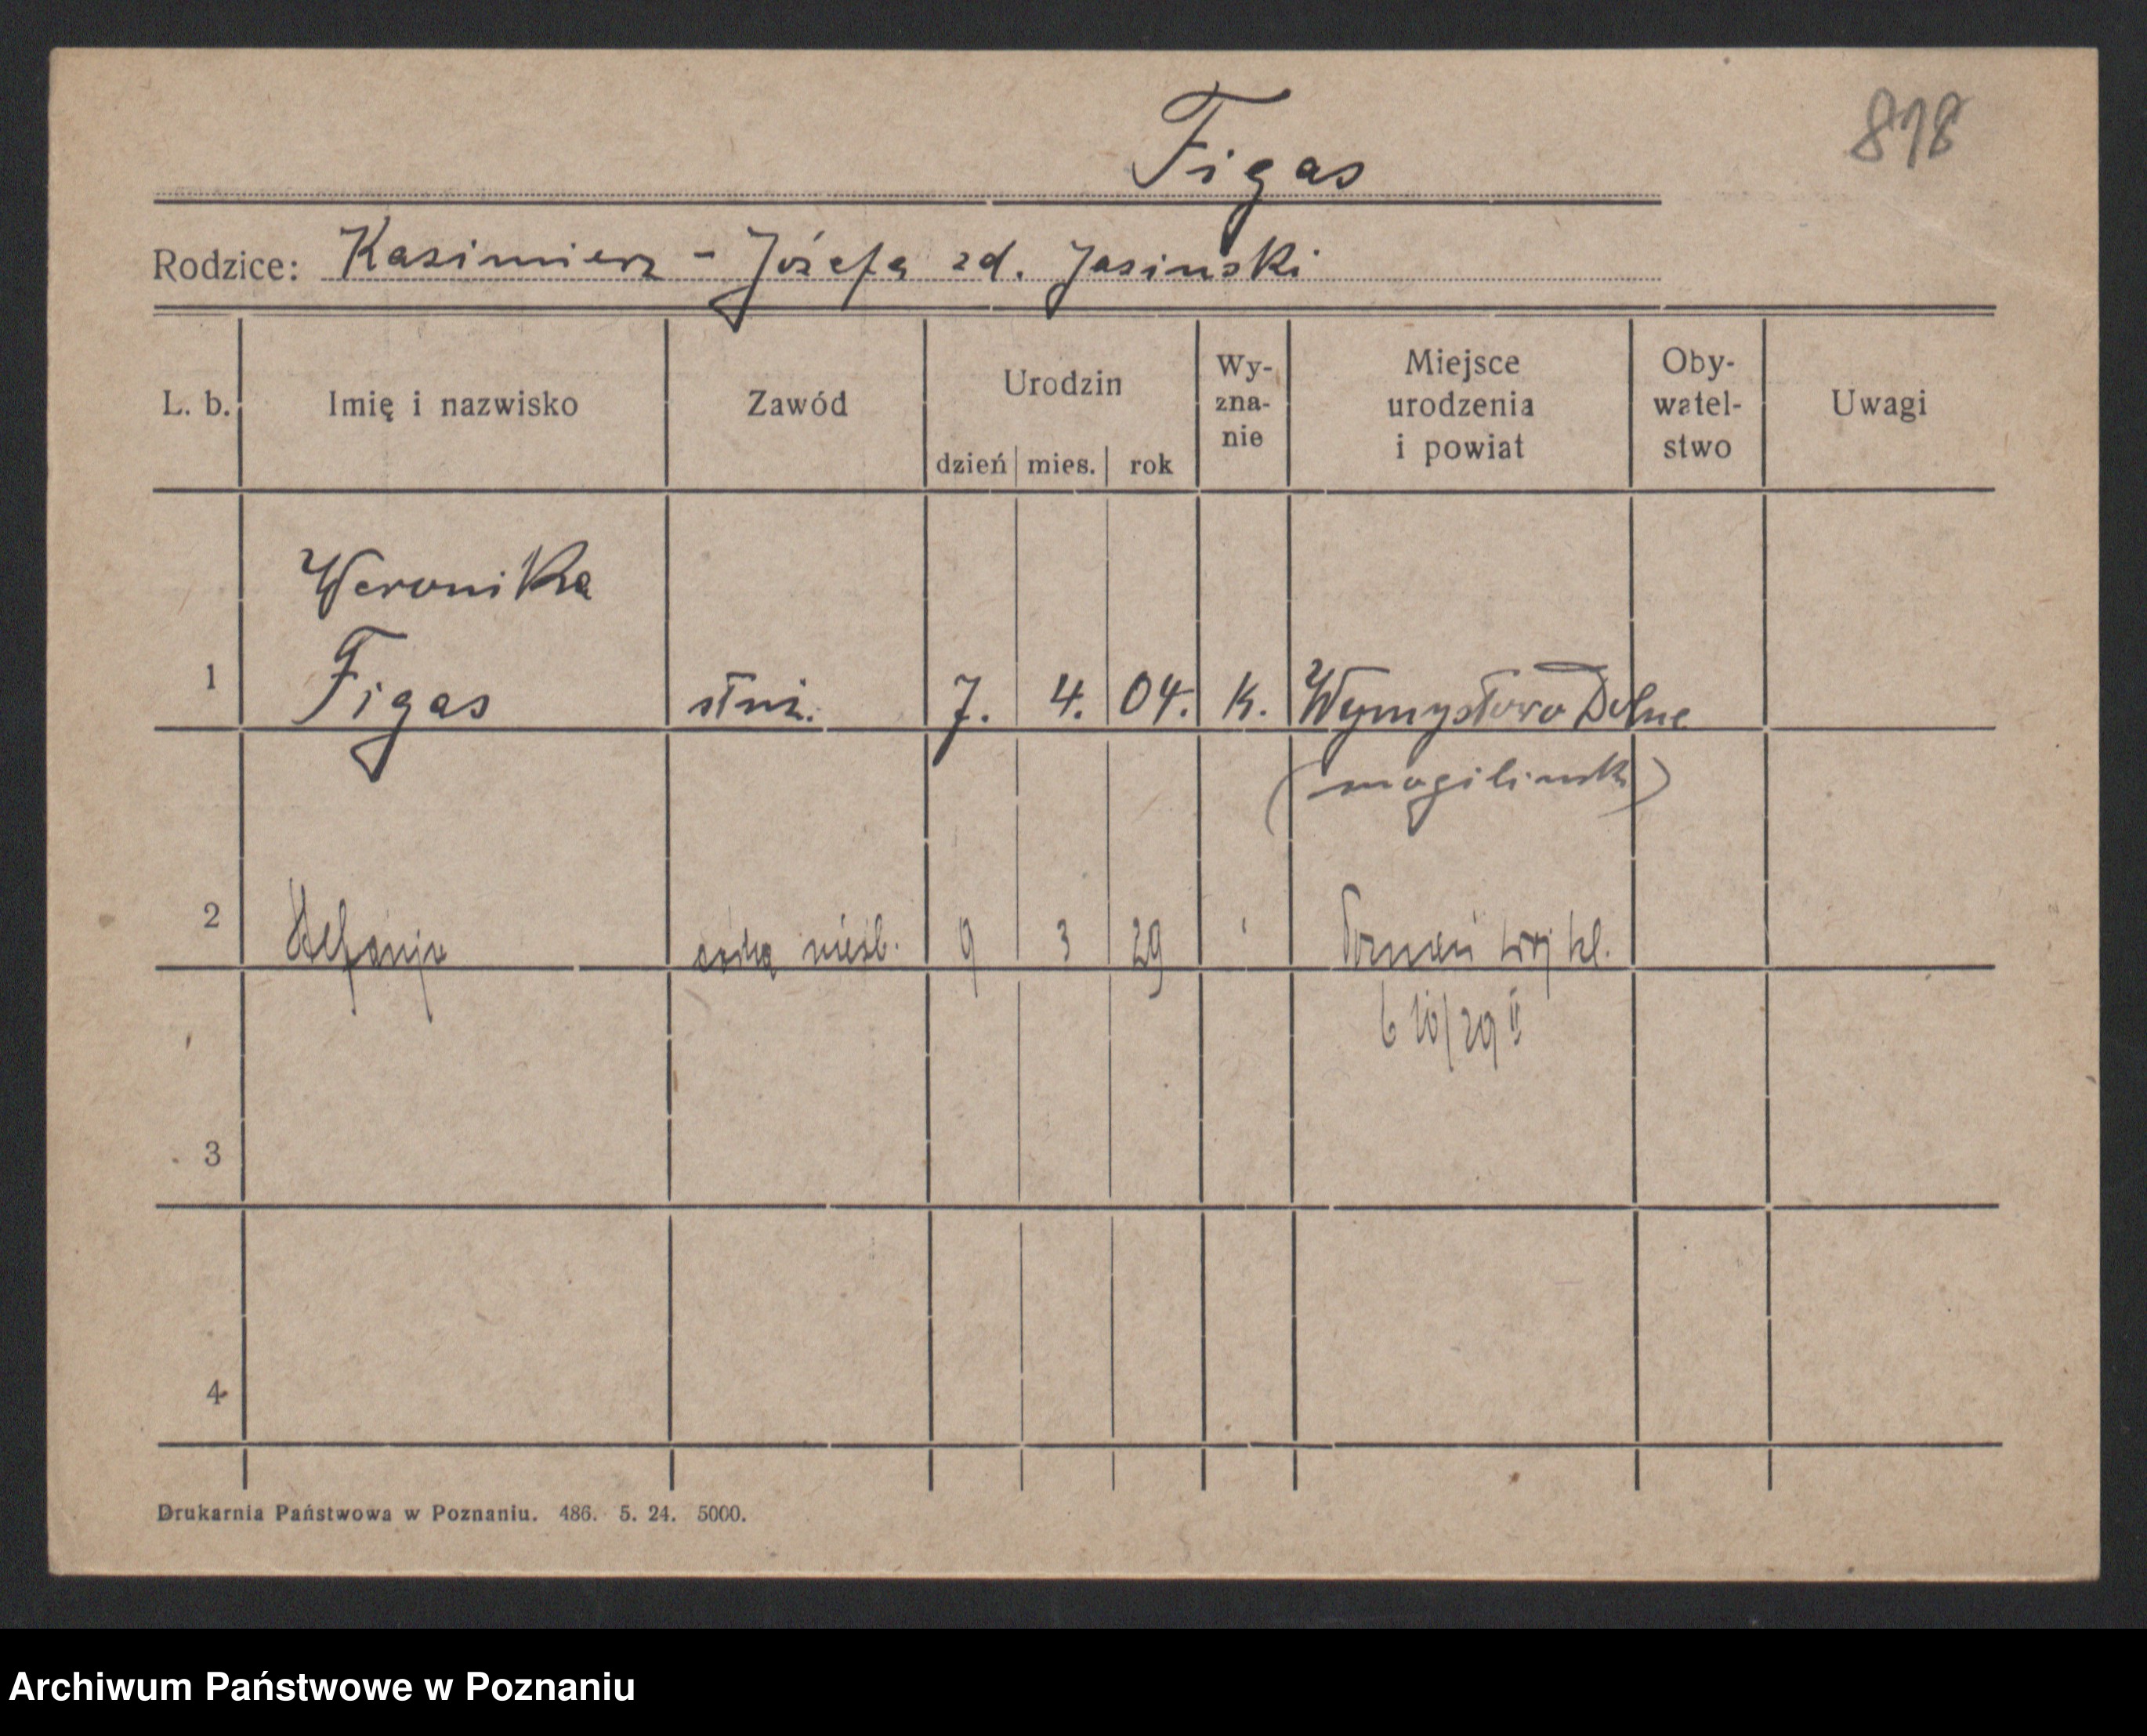 Figas
818
Rodzice: Kazimierz - Józefa zd. Jasinski
L. b. Imię i nazwisko Zawód Urodzin dzień mies. rok Wy-zna-nie Miejsce urodzenia i powiat Oby-watel-stwo Uwagi
Weronika
1 Figas służ. 7. 4. 04. K. Wymysłowo Dolne
(mogilinsk)
2 Stefanja córka nieśl. 9 3 29 Poznań
3
4
Drukarnia Państwowa w Poznaniu. 486. 5. 24. 5000.
Archiwum Państwowe w Poznaniu